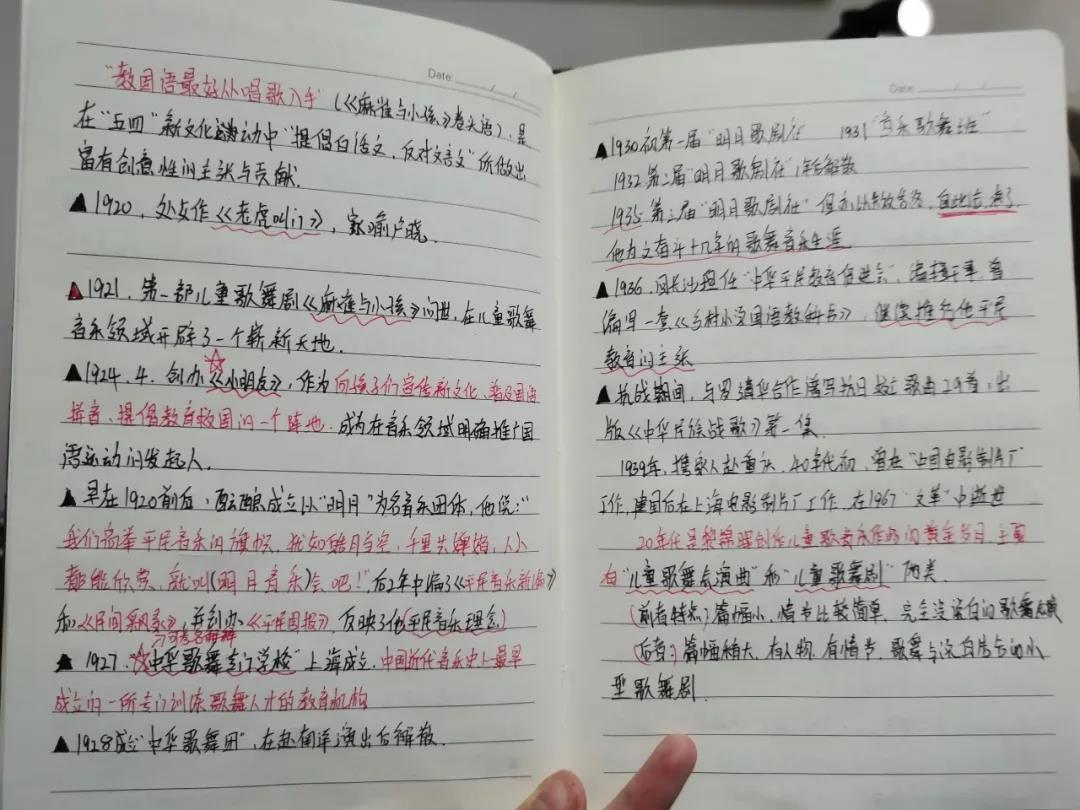 Date: / /
"教国语最好从唱歌入手"(《麻雀与小孩》卷头语),是
在"五四"新文化运动中"提倡白话文,反对文言文"所做出
富有创意性的主张与贡献.
▲1920,处女作《老虎叫门》,家喻户晓.
▲1921.第一部儿童歌舞剧《麻雀与小孩》问世,在儿童歌舞
音乐领域开辟了一个崭新天地.
▲1924.4.创办《小朋友》,作为向孩子们宣传新文化、普及国语
拼音、提倡教育救国的一个阵地.成为在音乐领域明确推广国
语运动的发起人.
▲早在1920前后,酝酿成立以"明月"为名音乐团体,他说:"
我们高举平民音乐的旗帜,犹如皓月当空,千里共婵娟,人人
都能欣赏,就叫(明月音乐)会吧!"后2年中编了《平民音乐新编》
和《民间采风录》,并创办《平民周报》,反映了他(平民音乐理念)
▲1927."中华歌舞专门学校"上海成立.中国近代音乐史上最早
成立的一所专门训练歌舞人才的教育机构
▲1928成立"中华歌舞团",在赴南洋演出后解散.
Date: / /
▲1930初第一届"明月歌剧社" 1931"音乐歌舞班"
1932.第二届"明月歌剧社"1年后解散
1935.第三届"明月歌剧社"但亦以失败告终,自此结束了
他为之奋斗十几年的歌舞音乐生涯
▲1936.回长沙担任"中华平民教育促进会",编辑干事,曾
编写一套《乡村小学国语教科书》,继续推行他平民
教育的主张
▲抗战期间,与罗靖华合作谱写抗日救亡歌曲29首,出
版《中华民族战歌》第一集.
1939年,携家人赴重庆,40年代初,曾在"中国电影制片厂"
工作,建国后在上海电影制片厂工作,在1967"文革"中逝世
20年代是黎锦晖创作儿童歌舞音乐作品的黄金岁月,主要
有"儿童歌舞表演曲"和"儿童歌舞剧"两类.
(前者特点)篇幅小,情节比较简单,完全没说白的歌舞表演
(后者:)篇幅稍大,有人物,有情节,歌舞与说白结合的小
型歌舞剧.